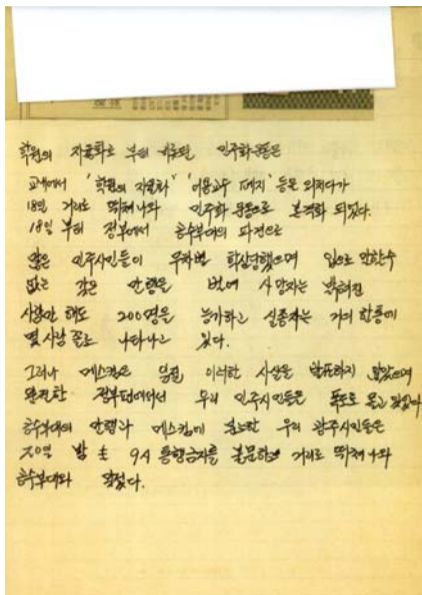 학원의 자율화로 부터 비롯된 민주화운동은
교내에서 '학원의 자율화' '어용교수 폐지' 등을 외치다가
18일 거리로 뛰쳐나와 민주화 운동으로 본격화 되었다.
18일 부터 정부에서 공수부대의 파견으로
많은 민주시민들이 무차별 학살당했으며 입으로 말할수
없는 갖은 만행을 벌여 사망자는 밝혀진
사람만 해도 200명을 능가하고 실종자는 거의 한동에
몇사람 꼴로 나타나고 있다.
그러나 메스컴은 일절 이러한 사실을 발표하지 않았으며
완전한 정부편에서서 우리 민주시민들은 폭도로 몰고 있었다
공수부대의 만행과 메스컴에 분노한 우리 광주시민들은
20일 밤 9시 통행금지를 불문하고 거리로 뛰쳐나와
공수부대와 싸웠다.